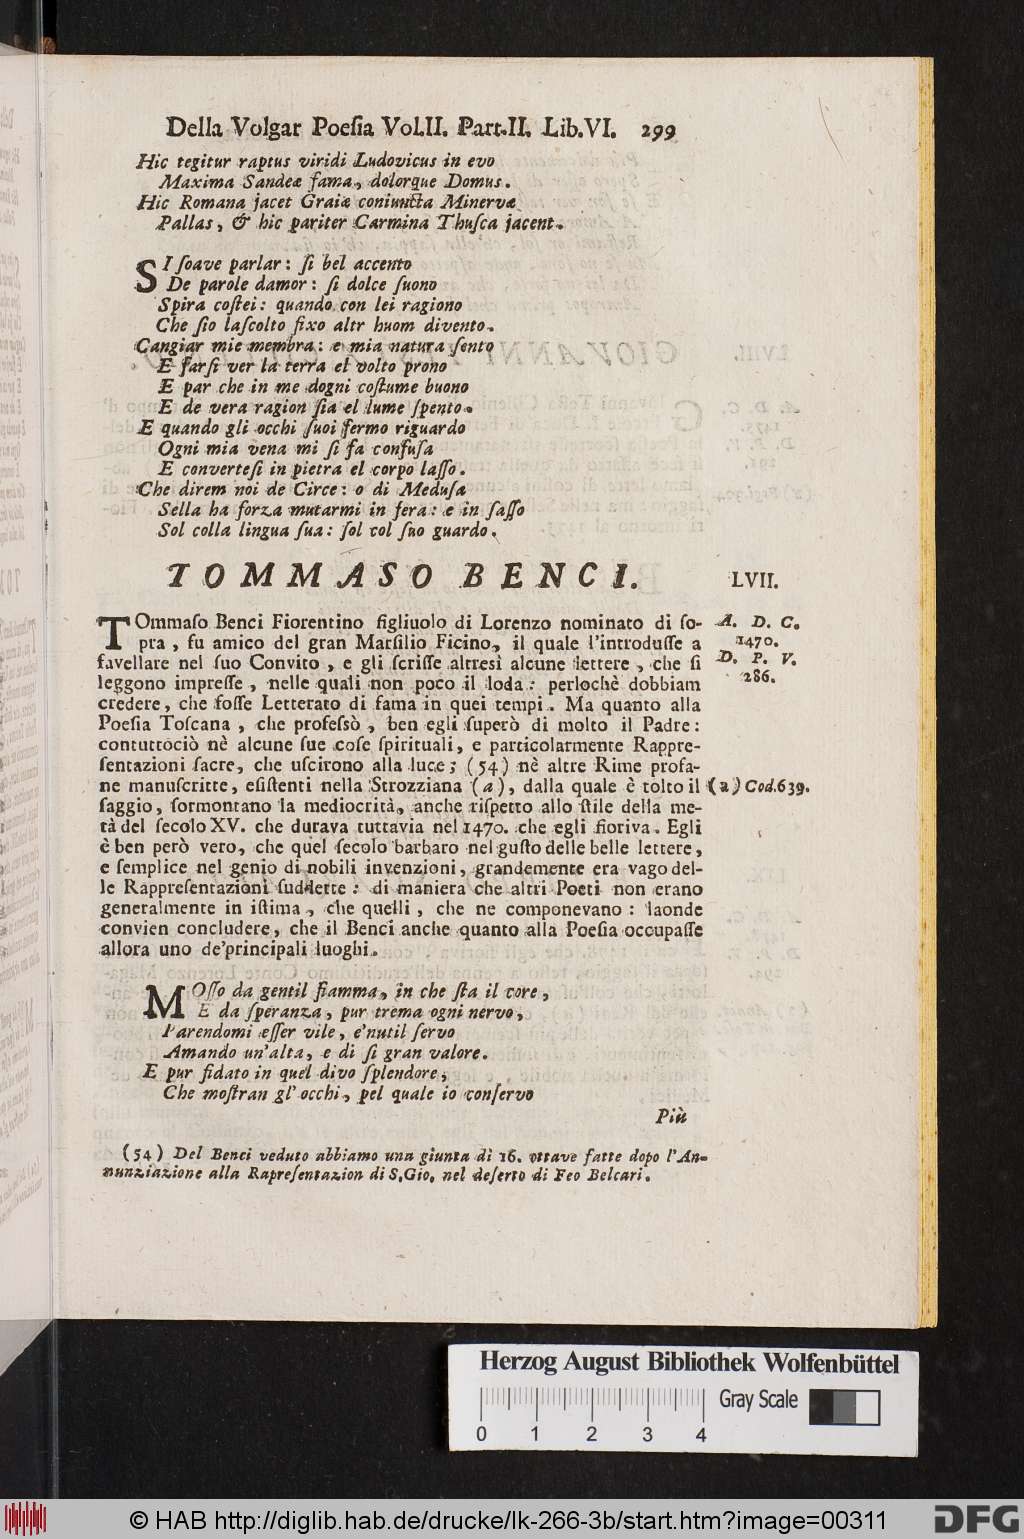 Della Volgar Poeſia Vol.II. Part.II. Lib.VI. 299
Hic tegitur raptus viridi Ludovicus in evo
Maxima Sandeæ fama, dolorque Domus.
Hic Romana jacet Graiæ coniuncta Minervæ
Pallas, & hic pariter Carmina Thuſca jacent.
SI ſoave parlar: ſi bel accento
De parole damor: ſi dolce ſuono
Spira coſtei: quando con lei ragiono
Che ſio laſcolto fixo altr huom divento.
Cangiar mie membra: e mia natura ſento
E farſi ver la terra el volto prono
E par che in me dogni coſtume buono
E de vera ragion ſia el lume ſpento.
E quando gli occhi ſuoi fermo riguardo
Ogni mia vena mi ſi fa confuſa
E converteſi in pietra el corpo laſſo.
Che direm noi de Circe: o di Meduſa
Sella ha forza mutarmi in fera: e in ſaſſo
Sol colla lingua ſua: ſol col ſuo guardo.
TOMMASO BENCI. LVII.
TOmmaſo Benci Fiorentino figliuolo di Lorenzo nominato di ſo- A. D. C.
pra, fu amico del gran Marſilio Ficino, il quale l'introduſſe a 1470.
favellare nel ſuo Convito, e gli ſcriſſe altresì alcune lettere, che ſi D. P. V.
leggono impreſſe, nelle quali non poco il loda: perlochè dobbiam 286.
credere, che foſſe Letterato di fama in quei tempi. Ma quanto alla
Poeſia Toſcana, che profeſsò, ben egli ſuperò di molto il Padre:
contuttociò nè alcune ſue coſe ſpirituali, e particolarmente Rappre-
ſentazioni ſacre, che uſcirono alla luce; (54) nè altre Rime profa-
ne manuſcritte, eſiſtenti nella Strozziana (a), dalla quale è tolto il (a) Cod.639.
ſaggio, ſormontano la mediocrità, anche riſpetto allo ſtile della me-
tà del ſecolo XV. che durava tuttavia nel 1470. che egli fioriva. Egli
è ben però vero, che quel ſecolo barbaro nel guſto delle belle lettere,
e ſemplice nel genio di nobili invenzioni, grandemente era vago del-
le Rappreſentazioni ſuddette: di maniera che altri Poeti non erano
generalmente in iſtima, che quelli, che ne componevano: laonde
convien concludere, che il Benci anche quanto alla Poeſia occupaſſe
allora uno de'principali luoghi.
MOſſo da gentil fiamma, in che ſta il core,
E da ſperanza, pur trema ogni nervo,
Parendomi eſſer vile, e'nutil ſervo
Amando un'alta, e di ſi gran valore.
E pur fidato in quel divo ſplendore,
Che moſtran gl'occhi, pel quale io conſervo
Più
(54) Del Benci veduto abbiamo una giunta di 16. ottave fatte dopo l'An-
nunziazione alla Rapreſentazion di S.Gio. nel deſerto di Feo Belcari.
Herzog August Bibliothek Wolfenbüttel
Gray Scale
0 1 2 3 4
© HAB http://diglib.hab.de/drucke/lk-266-3b/start.htm?image=00311
DFG